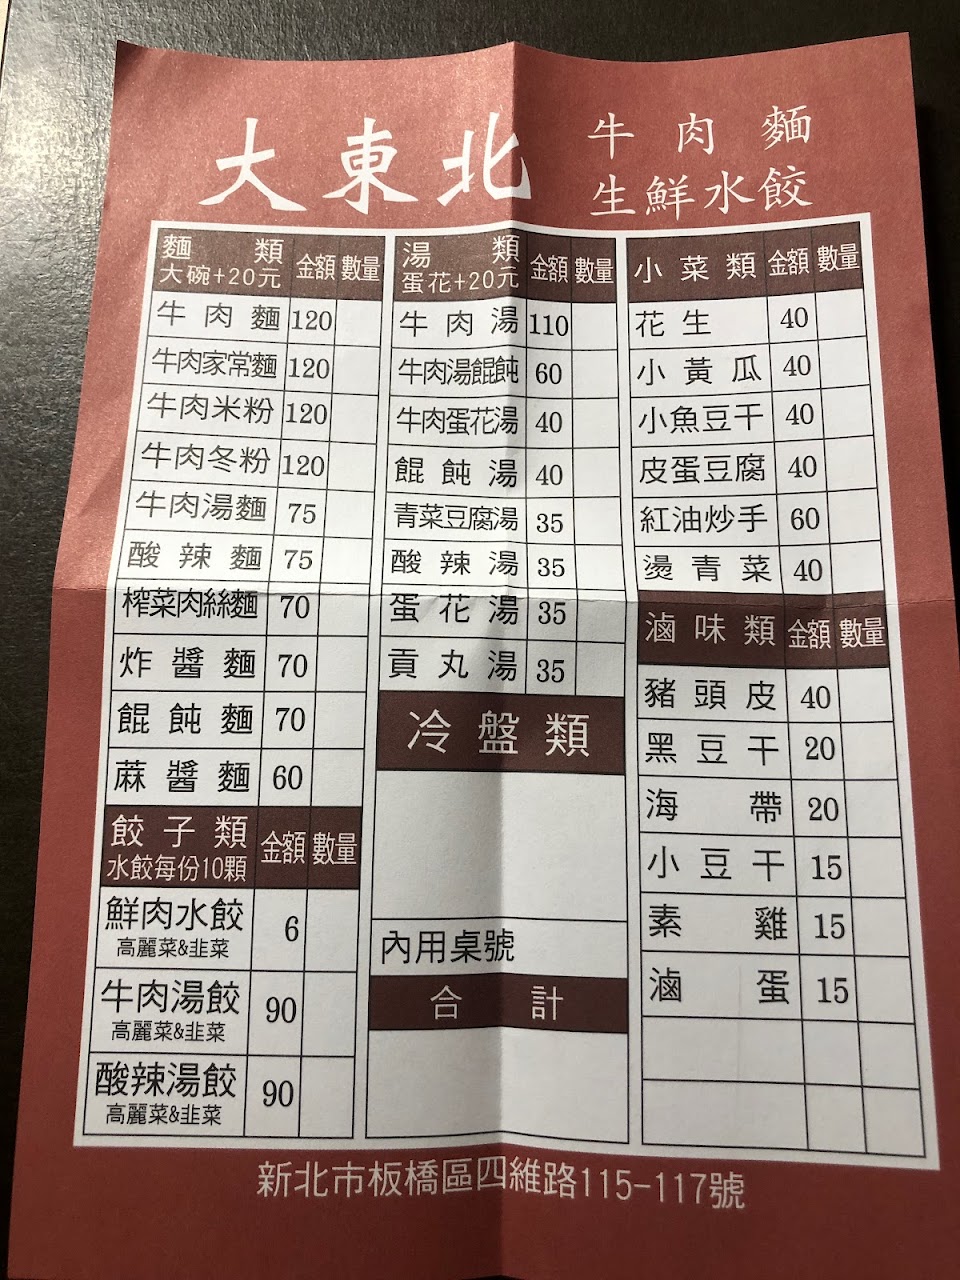 大東北
牛肉麵
生鮮水餃
麵類 金額 數量
大碗+20元
牛肉麵 120
牛肉家常麵 120
牛肉米粉 120
牛肉冬粉 120
牛肉湯麵 75
酸辣麵 75
榨菜肉絲麵 70
炸醬麵 70
餛飩麵 70
蔴醬麵 60
餃子類 金額 數量
水餃每份10顆
鮮肉水餃 6
高麗菜&韭菜
牛肉湯餃 90
高麗菜&韭菜
酸辣湯餃 90
高麗菜&韭菜
湯類 金額 數量
蛋花+20元
牛肉湯 110
牛肉湯餛飩 60
牛肉蛋花湯 40
餛飩湯 40
青菜豆腐湯 35
酸辣湯 35
蛋花湯 35
貢丸湯 35
冷盤類
內用桌號
合計
小菜類 金額 數量
花生 40
小黃瓜 40
小魚豆干 40
皮蛋豆腐 40
紅油炒手 60
燙青菜 40
滷味類 金額 數量
豬頭皮 40
黑豆干 20
海帶 20
小豆干 15
素雞 15
滷蛋 15
新北市板橋區四維路115-117號